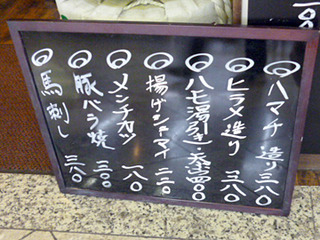 ◎ハマチ造り三八〇
◎ヒラメ造り三八〇
◎ハモ湯引き・天ぷら四〇〇
◎揚げシューマイ二二〇
◎メンチカツ一八〇
◎豚バラ焼三〇〇
◎馬刺し三八〇